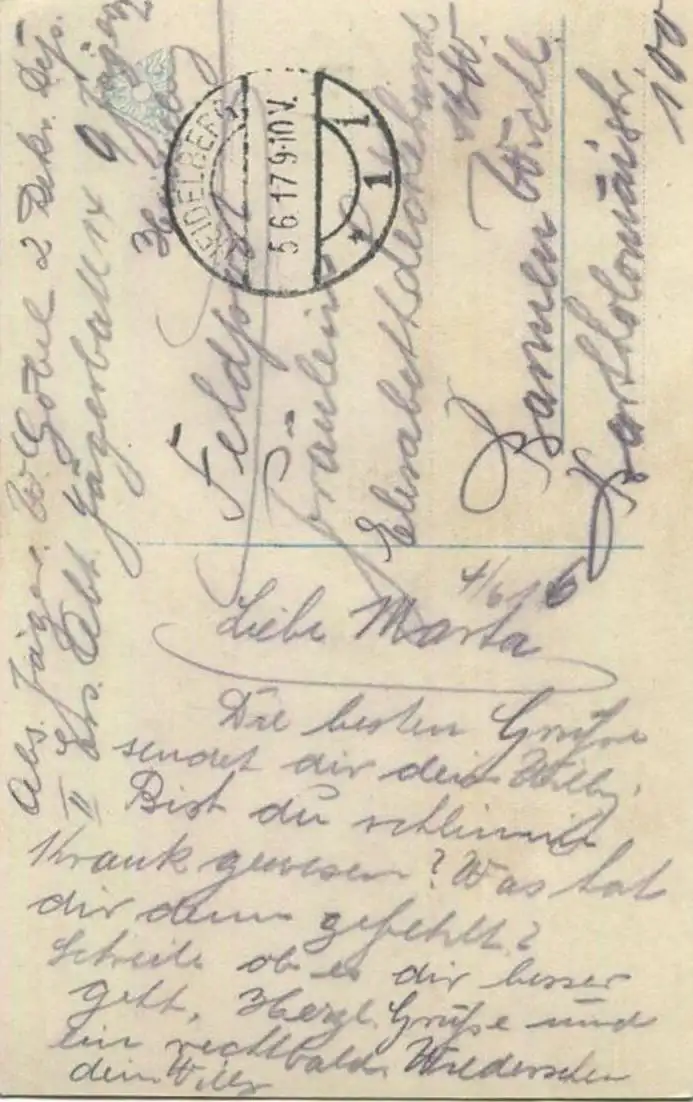 Abs. Jäger. W. Göbel 2 Rekr. Dep.
II Ers. Abt. Jägerbatl 14
HEIDELBERG
5.6.17 9-10V.
1
1
Feldpost
Fräulein
Elisabeth
Barmen
Bartholomäistr.
100
4/6
Liebe Marta
Die besten Grüße
sendet dir dein Willy.
Bist du schlimm
krank gewesen? Was hat
dir denn gefehlt?
Schreibe ob es dir besser
geht, Herzl. Grüße und
ein recht bald. Wiedersehen
dein Willy